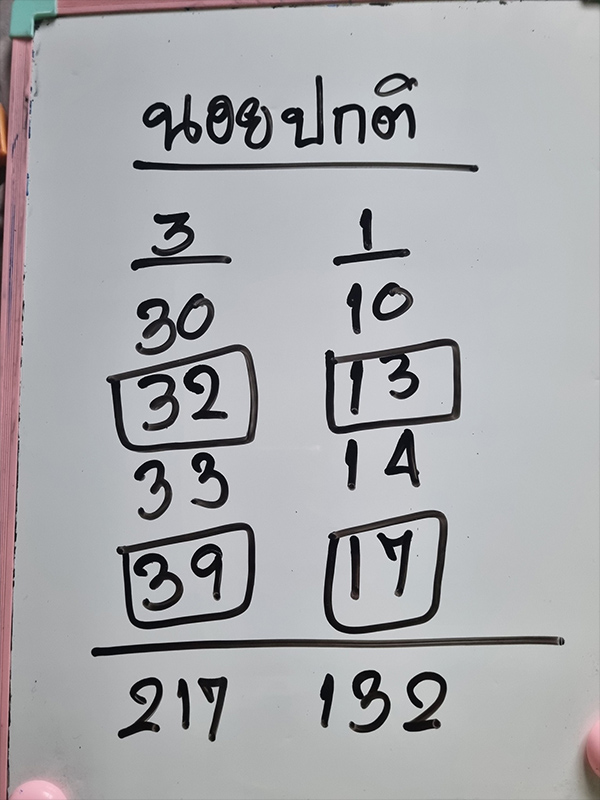 นอยปกติ
3 1
30 10
32 13
33 14
39 17
217 132